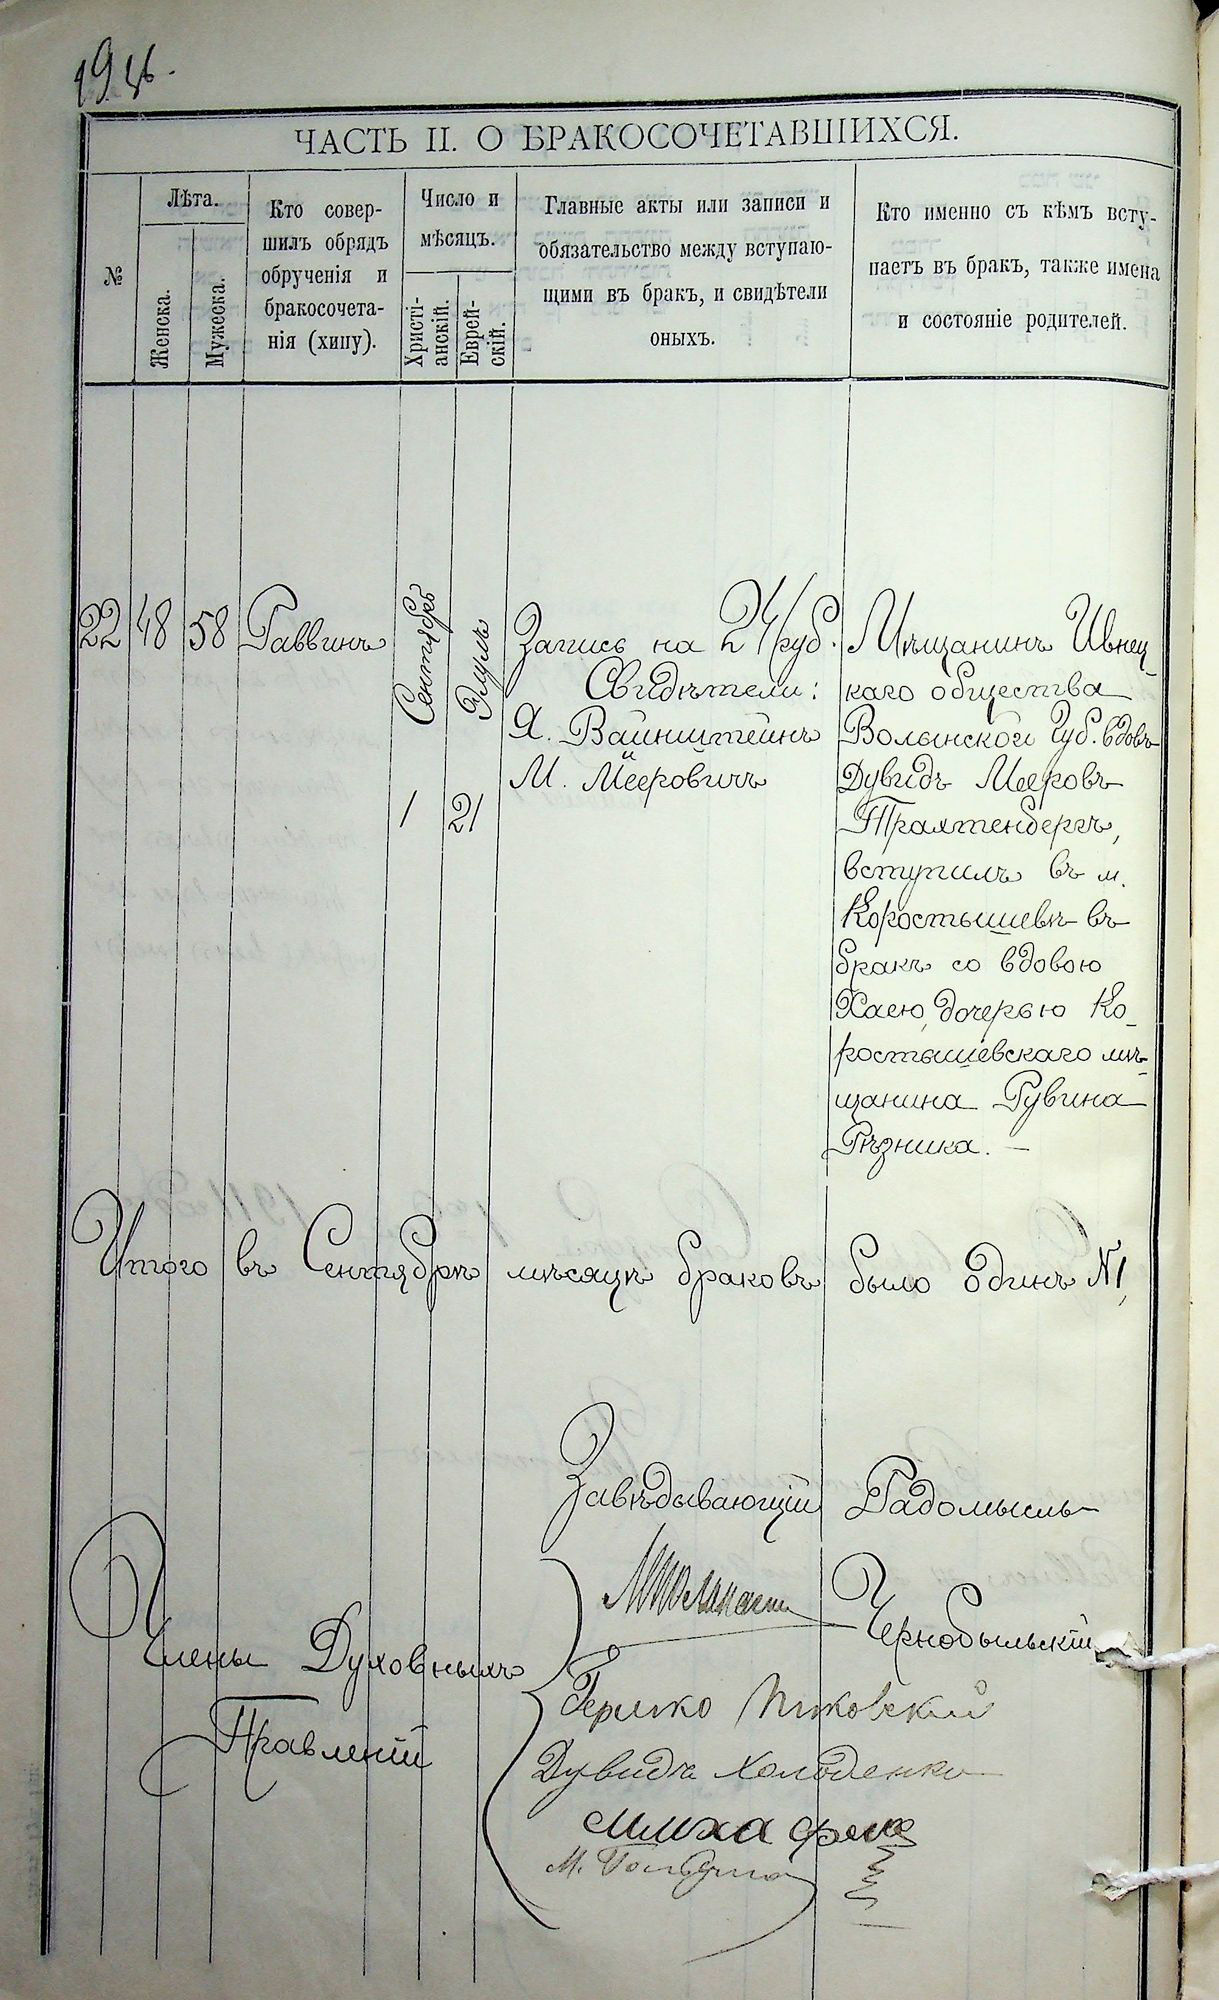 ЧАСТЬ II. О БРАКОСОЧЕТАВШИХСЯ.
№
Лѣта.
Женска.
Мужеска.
Кто совер-
шилъ обрядъ
обрученія и
бракосочета-
нія (хипу).
Число и
мѣсяцъ.
Христі-
анскій.
Еврей-
скій.
Главные акты или записи и
обязательство между вступаю-
щими въ бракъ, и свидѣтели
оныхъ.
Кто именно съ кѣмъ всту-
паетъ въ бракъ, также имена
и состояніе родителей.
22
48
58
Раввинъ
Сентябрь
1
Элулъ
21
Запись на 24 руб.
Свидѣтели:
Я. Вайнштейнъ
М. Мееровичъ
Мѣщанинъ Ивнец-
каго общества
Волынской Губ. вдовъ
Дувидъ Мееровъ
Трахтенбергъ,
вступилъ въ м.
Коростышевѣ въ
бракъ со вдовою
Хаею, дочерью Ко-
ростышевскаго мѣ-
щанина Рувина
Рѣзника. —
Итого въ Сентябрѣ мѣсяцѣ браковъ было одинъ №1,
Завѣдывающій Радомысль-
Чернобыльскій
Члены Духовныхъ
Правленій
Гершко Пиковскій
Дувидъ Холоденко